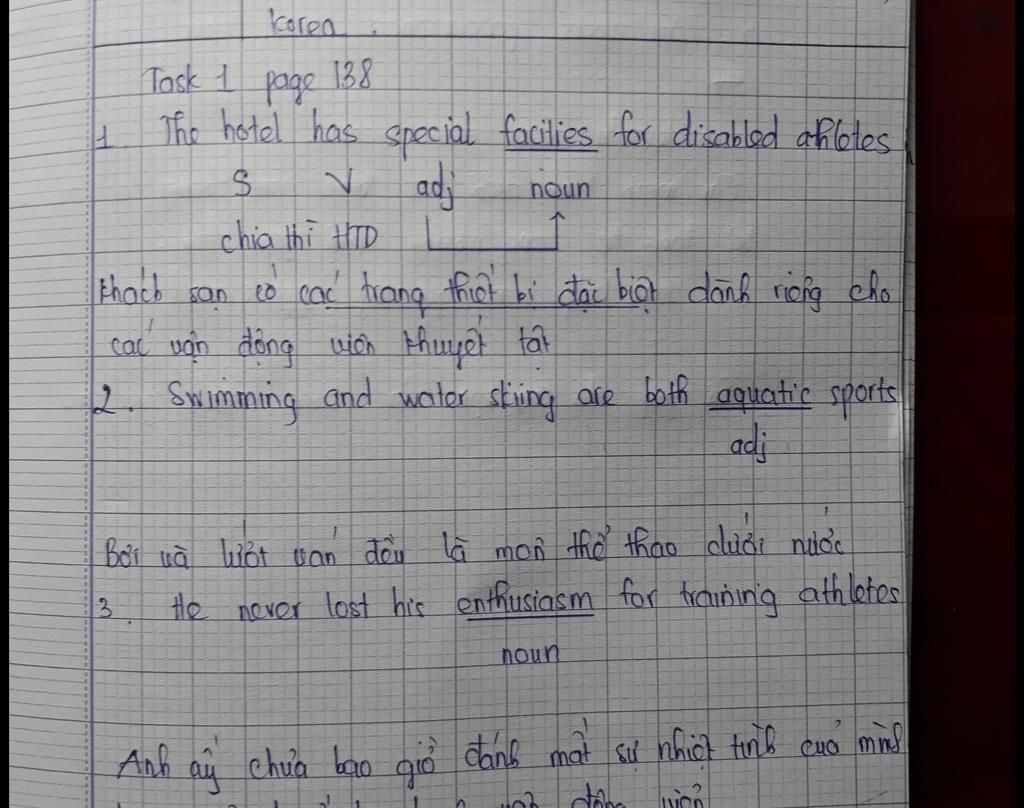 Korea.
Task 1 page 138
1. The hotel has special facilies for disabled athletes
S V adj noun
chia thì HTD
Khách sạn có các trang thiết bị đặc biệt dành riêng cho
các vận động viên khuyết tật
2. Swimming and water skiing are both aquatic sports
adj
Bơi và lướt ván đều là môn thể thao dưới nước
3. He never lost his enthusiasm for training athletes
noun
Anh ấy chưa bao giờ đánh mất sự nhiệt tình của mình
động viên